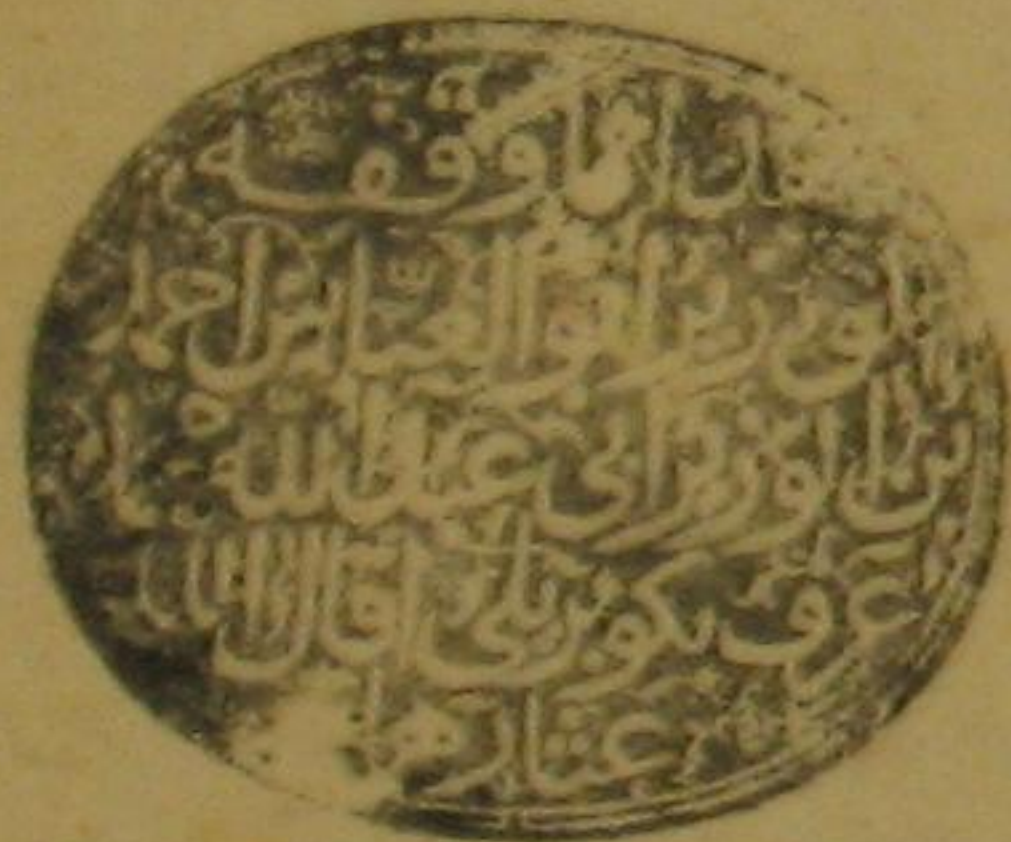 هذا مما وقفه
الوزير ابو العباس احمد
بن الوزير ابي عبد الله محمد
عرف بكوپريلى اقال الله
عثارهما